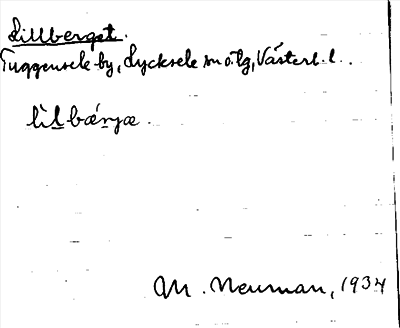 Lillberget.
Tuggensele by, Lycksele sn o. lg, Västerb. l.
lìlbǽrjæ.
M. Neuman, 1934